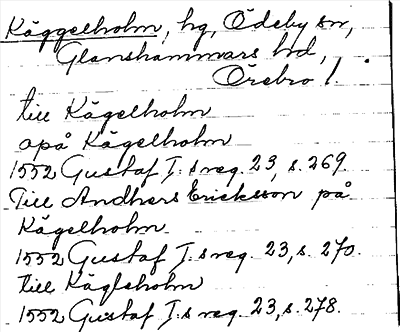 Käggelholm, hg, Ödeby sn,
Glanshammars hd,
Örebro l.
till Kägelholm
apå Kägelholm
1552 Gustaf I.s reg. 23, s. 269.
Till Andhers Ericksson på
Kägelholm
1552 Gustaf I.s reg. 23, s. 270.
till Käglsholm
1552 Gustaf I.s reg. 23, s. 278.